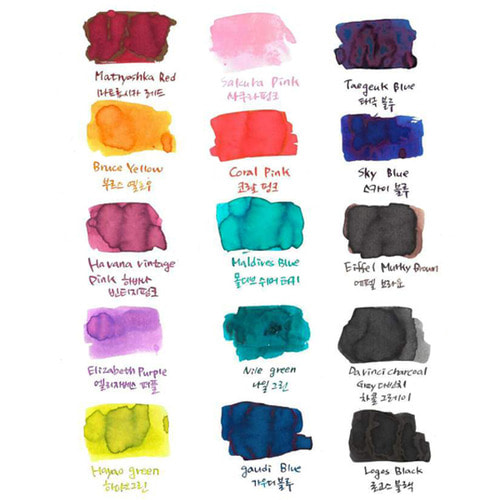 Matryoshka Red
마트료시카 레드
Sakura Pink
사쿠라 핑크
Taegeuk Blue
태극 블루
Bruce Yellow
부르스 옐로우
Coral Pink
코랄 핑크
Sky Blue
스카이 블루
Havana Vintage
Pink 하바나
빈티지핑크
Maldives Blue
몰디브 쉬머 터키
Eiffel Murky Brown
에펠 브라운
Elizabeth Purple
엘리자베스 퍼플
Nile green
나일 그린
Davinci charcoal
Grey 다빈치
차콜 그레이
Hayao green
하야오그린
gaudi Blue
가우디블루
Logos Black
로고스 블랙